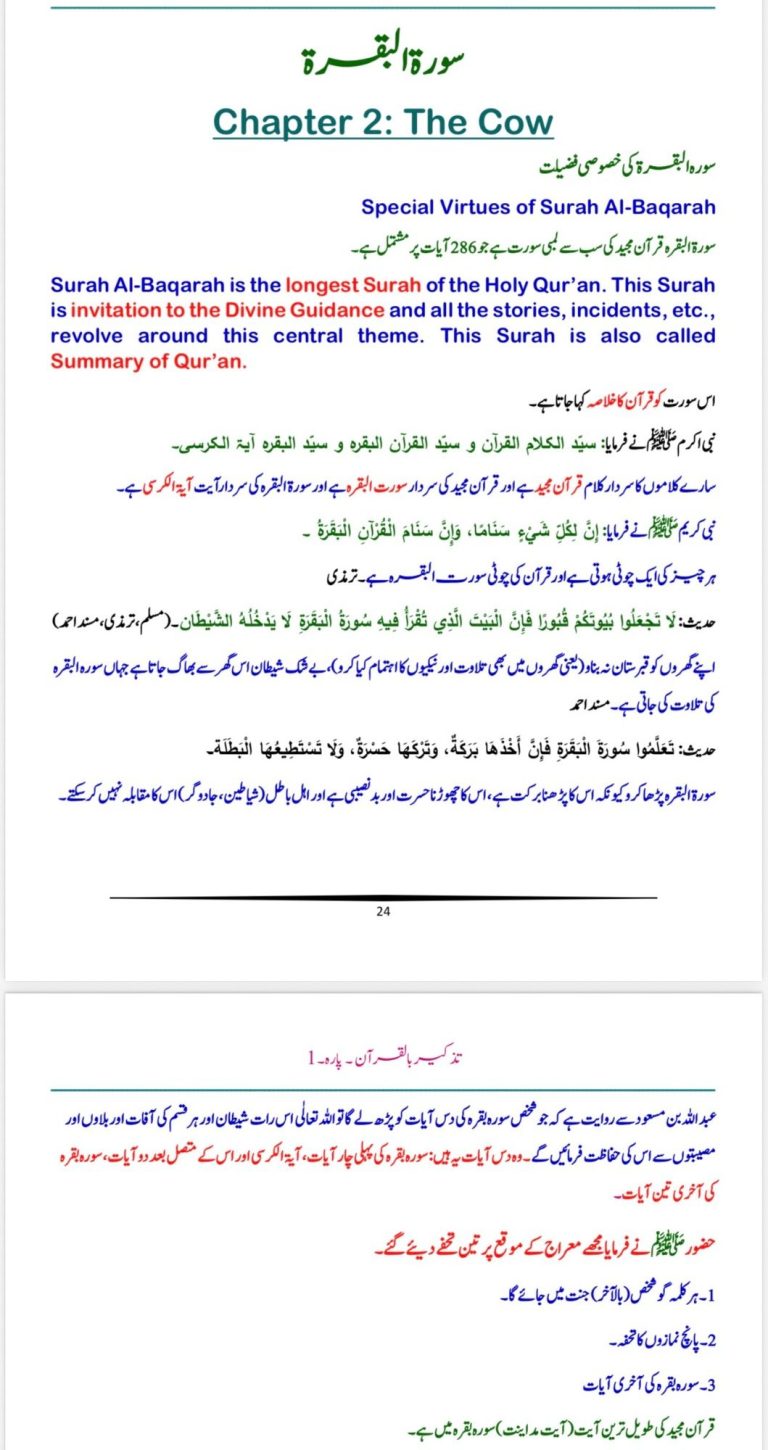 سورۃالبقرۃ
Chapter 2: The Cow
سورہ البقرۃ کی خصوصی فضیلت
Special Virtues of Surah Al-Baqarah
سورۃ البقرہ قرآن مجید کی سب سے لمبی سورت ہے جو 286 آیات پر مشتمل ہے۔
Surah Al-Baqarah is the longest Surah of the Holy Qur’an. This Surah
is invitation to the Divine Guidance and all the stories, incidents, etc.,
revolve around this central theme. This Surah is also called
Summary of Qur’an.
اس سورت کو قرآن کا خلاصہ کہا جاتا ہے۔
نبی اکرم ﷺ نے فرمایا: سیّد الکلام القرآن و سیّد القرآن البقرہ و سیّد البقرہ آیۃ الکرسی۔
سارے کلاموں کا سردار کلام قرآن مجید ہے اور قرآن مجید کی سردار سورت البقرہ ہے اور سورۃ البقرہ کی سردار آیت آیۃ الکرسی ہے۔
نبی کریم ﷺ نے فرمایا: إِنَّ لِكُلِّ شَيْءٍ سَنَامًا، وَإِنَّ سَنَامَ الْقُرْآنِ الْبَقَرَةُ ۔
ہر چیز کی ایک چوٹی ہوتی ہے اور قرآن کی چوٹی سورت البقرہ ہے۔ ترمذی
حدیث: لَا تَجْعَلُوا بُيُوتَكُمْ قُبُورًا فَإِنَّ الْبَيْتَ الَّذِي تُقْرَأُ فِيهِ سُورَةُ الْبَقَرَةِ لَا يَدْخُلُهُ الشَّيْطَان۔(مسلم، ترمذی، مسند احمد)
اپنے گھروں کو قبرستان نہ بناو (یعنی گھروں میں بھی تلاوت اور نیکیوں کا اہتمام کیا کرو)، بے شک شیطان اس گھر سے بھاگ جاتا ہے جہاں سورہ البقرہ
کی تلاوت کی جاتی ہے۔ مسند احمد
حدیث: تَعَلَّمُوا سُورَةَ الْبَقَرَةِ فَإِنَّ أَخْذَهَا بَرَكَةٌ، وَتَرْكَهَا حَسْرَةٌ، وَلَا تَسْتَطِيعُهَا الْبَطَلَة۔
سورۃ البقرہ پڑھا کرو کیونکہ اس کا پڑھنا برکت ہے، اس کا چھوڑنا حسرت اور بدنصیبی ہے اور اہل باطل (شیاطین، جادوگر) اس کا مقابلہ نہیں کر سکتے۔
24
تذکیر بالقرآن ۔ پارہ۔1
عبداللہ بن مسعود سے روایت ہے کہ جو شخص سورہ بقرہ کی دس آیات کو پڑھ لے گا تو اللہ تعالٰی اس رات شیطان اور ہر قسم کی آفات اور بلاوں اور
مصیبتوں سے اس کی حفاظت فرمائیں گے۔ وہ دس آیات یہ ہیں: سورہ بقرہ کی پہلی چار آیات، آیۃ الکرسی اور اس کے متصل بعد دو آیات، سورہ بقرہ
کی آخری تین آیات۔
حضور ﷺ نے فرمایا مجھے معراج کے موقع پر تین تحفے دیئے گئے۔
1۔ ہر کلمہ گو شخص (بالآخر) جنت میں جائے گا۔
2۔ پانچ نمازوں کا تحفہ۔
3۔ سورہ بقرہ کی آخری آیات
قرآن مجید کی طویل ترین آیت (آیت مداینت) سورہ بقرہ میں ہے۔